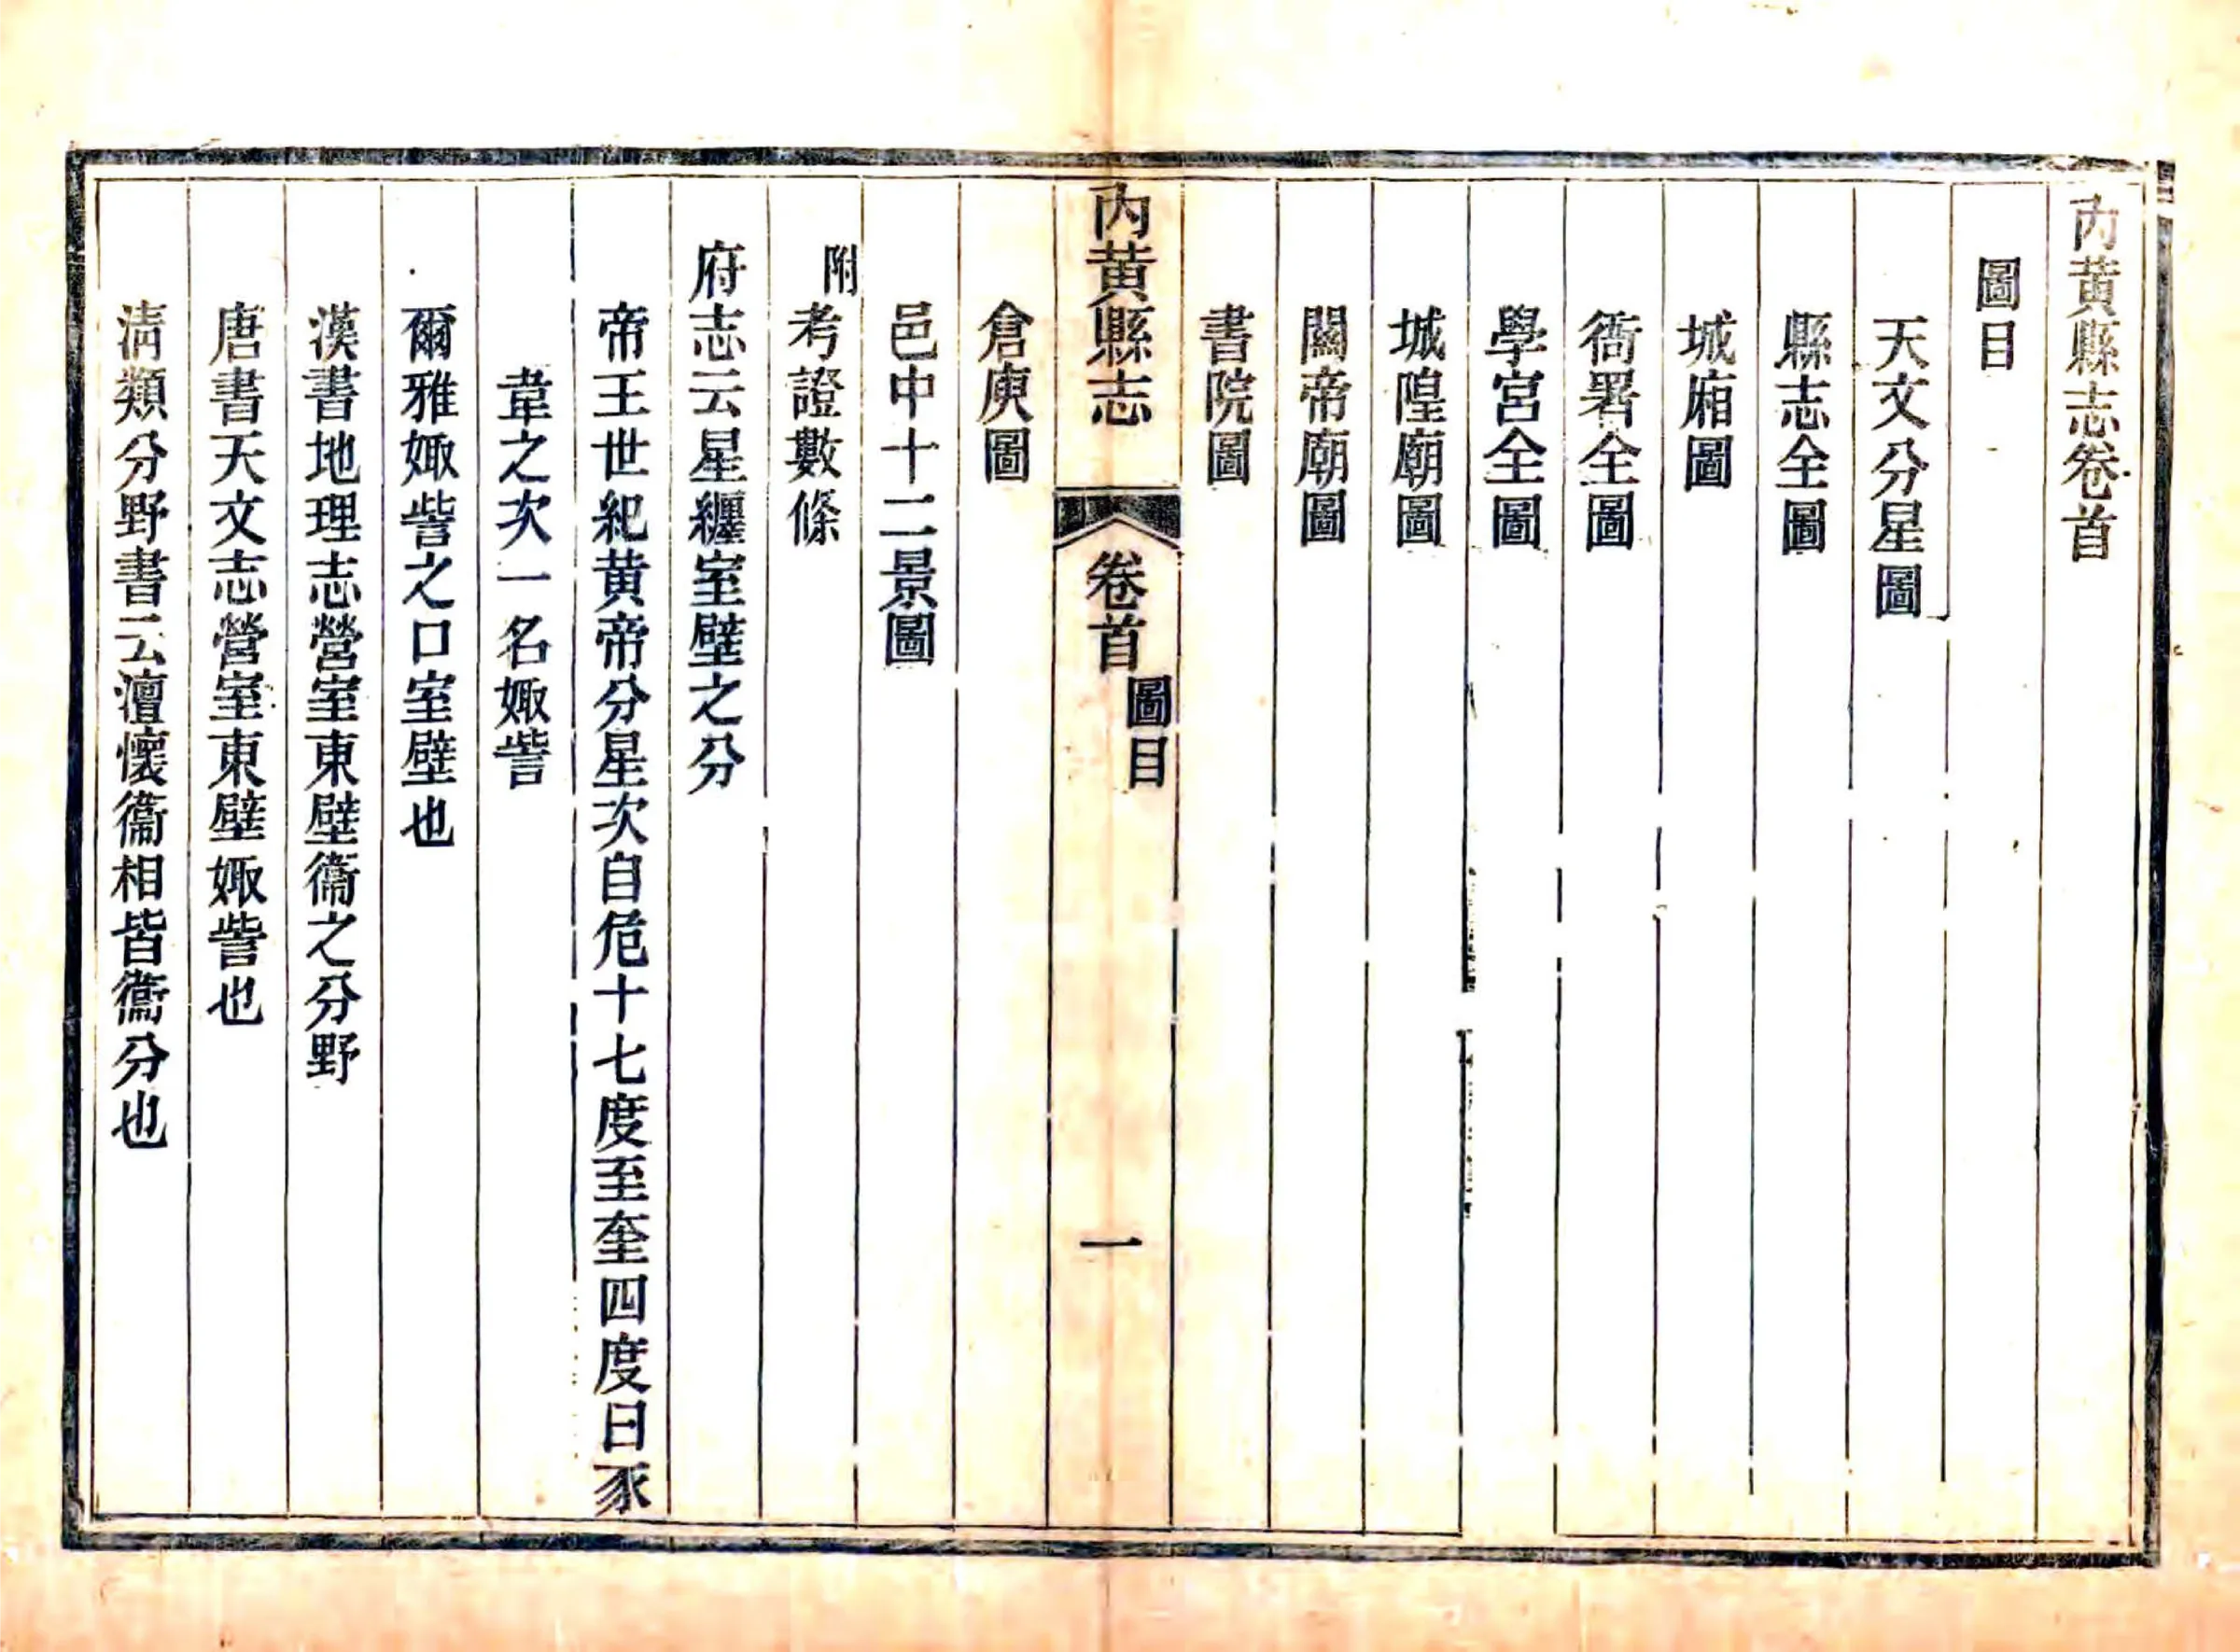 內黃縣志卷首
圖目
天文分星圖
縣志全圖
城廂圖
衙署全圖
學宮全圖
城隍廟圖
關帝廟圖
書院圖
內黃縣志
卷首
圖目
一
倉庾圖
邑中十二景圖
附
考證數條
府志云星纏室壁之分
帝王世紀黃帝分星次自危十七度至奎四度曰豕
韋之次一名娵訾
爾雅娵訾之口室壁也
漢書地理志營室東壁衞之分野
唐書天文志營室東壁娵訾也
淸類分野書云澶懷衞相皆衞分也